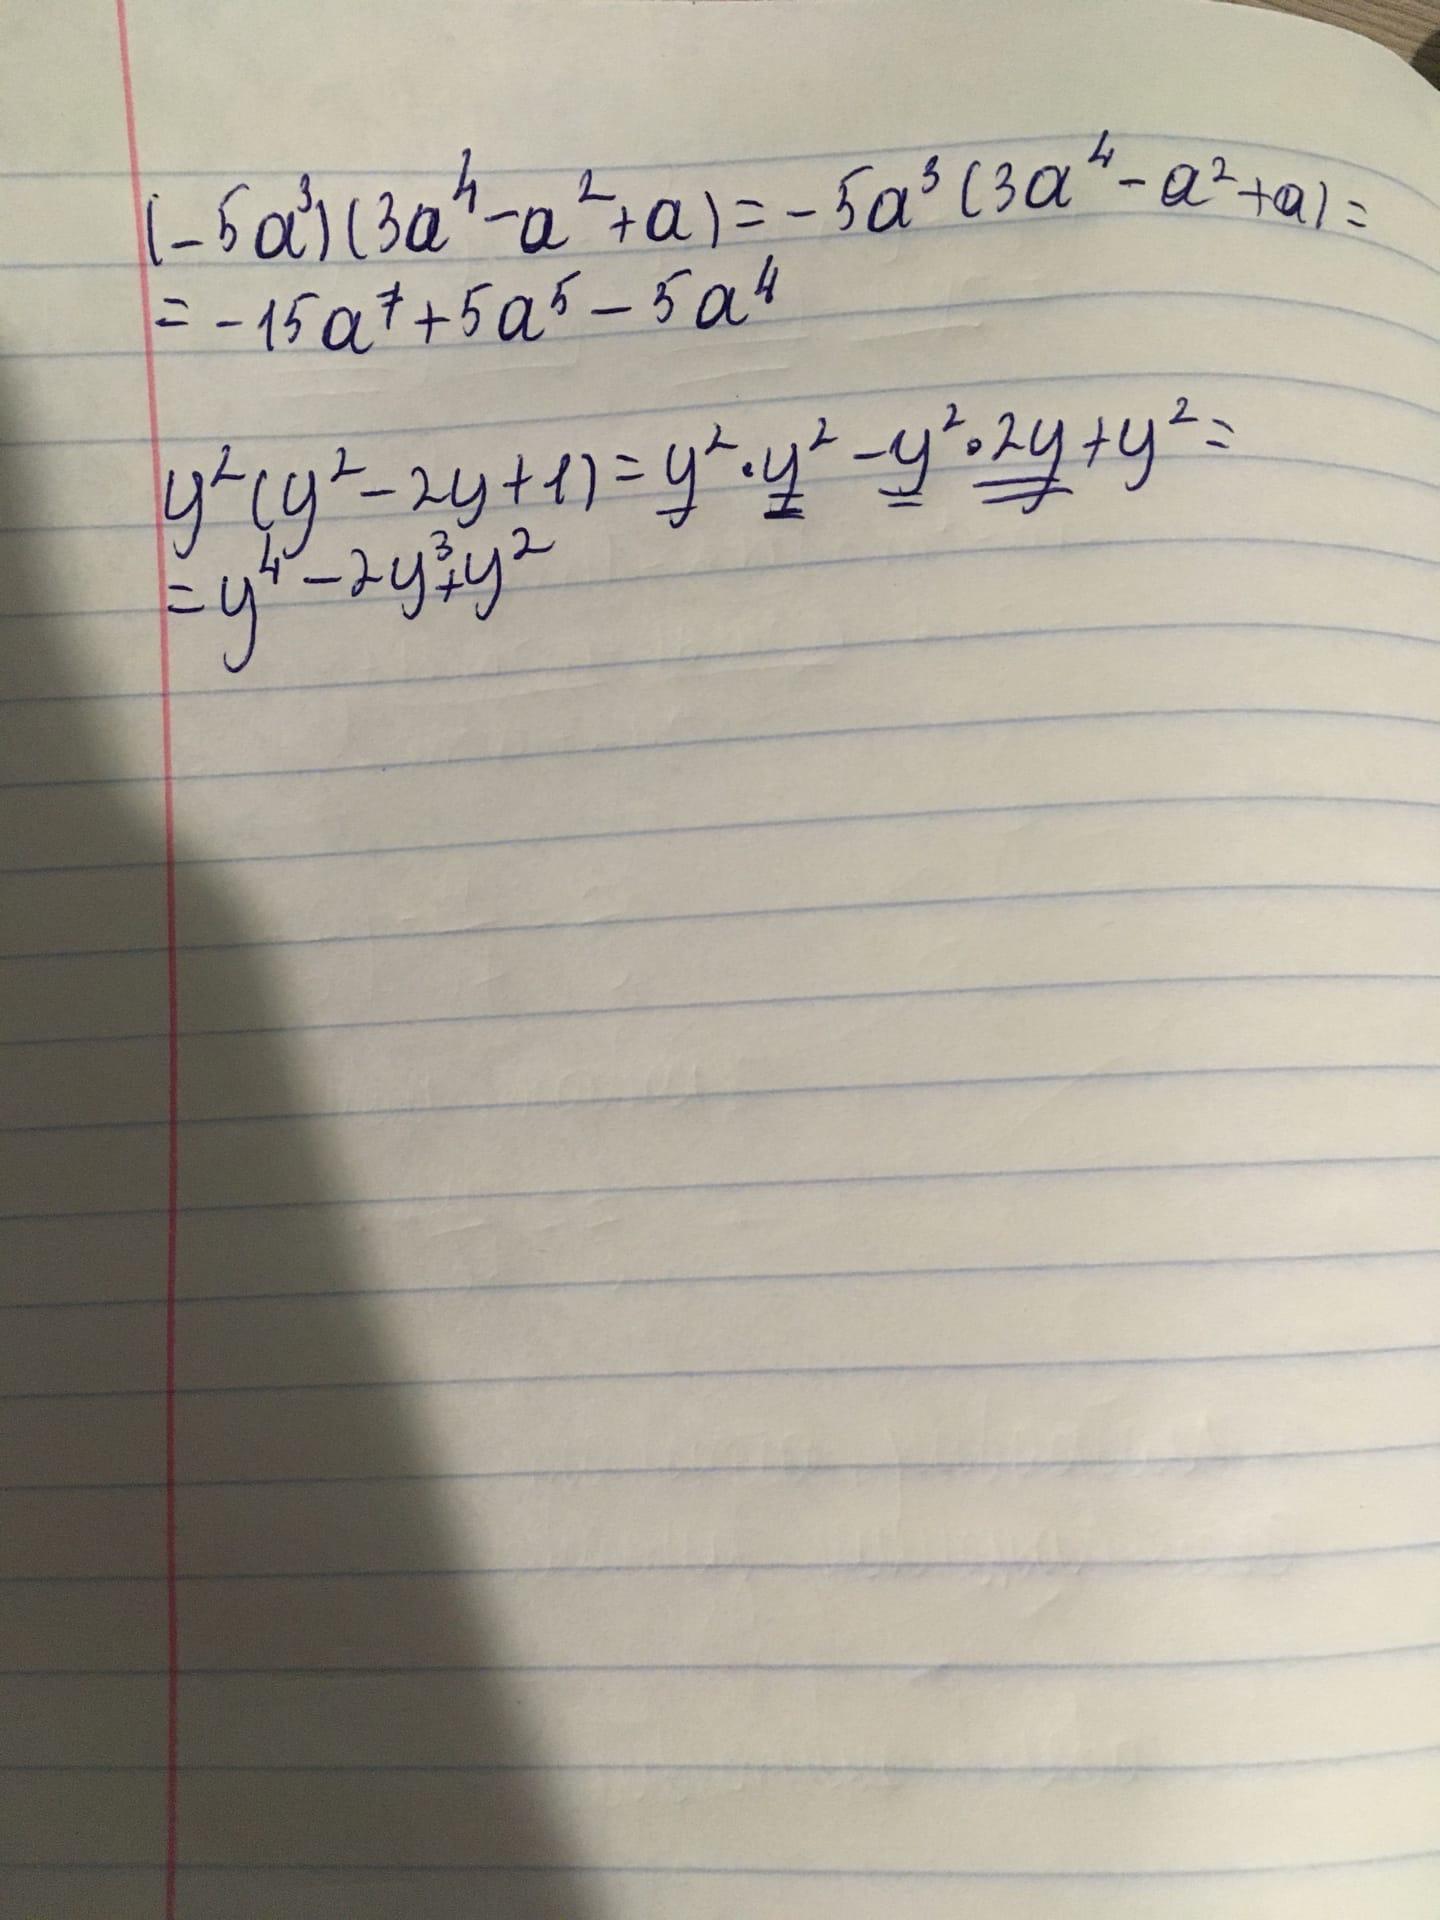 (-5a³)(3a⁴-a²+a)=-5a³(3a⁴-a²+a)=
=-15a⁷+5a⁵-5a⁴
y²(y²-2y+1)=y²·y²-y²·2y+y²=
=y⁴-2y³+y²